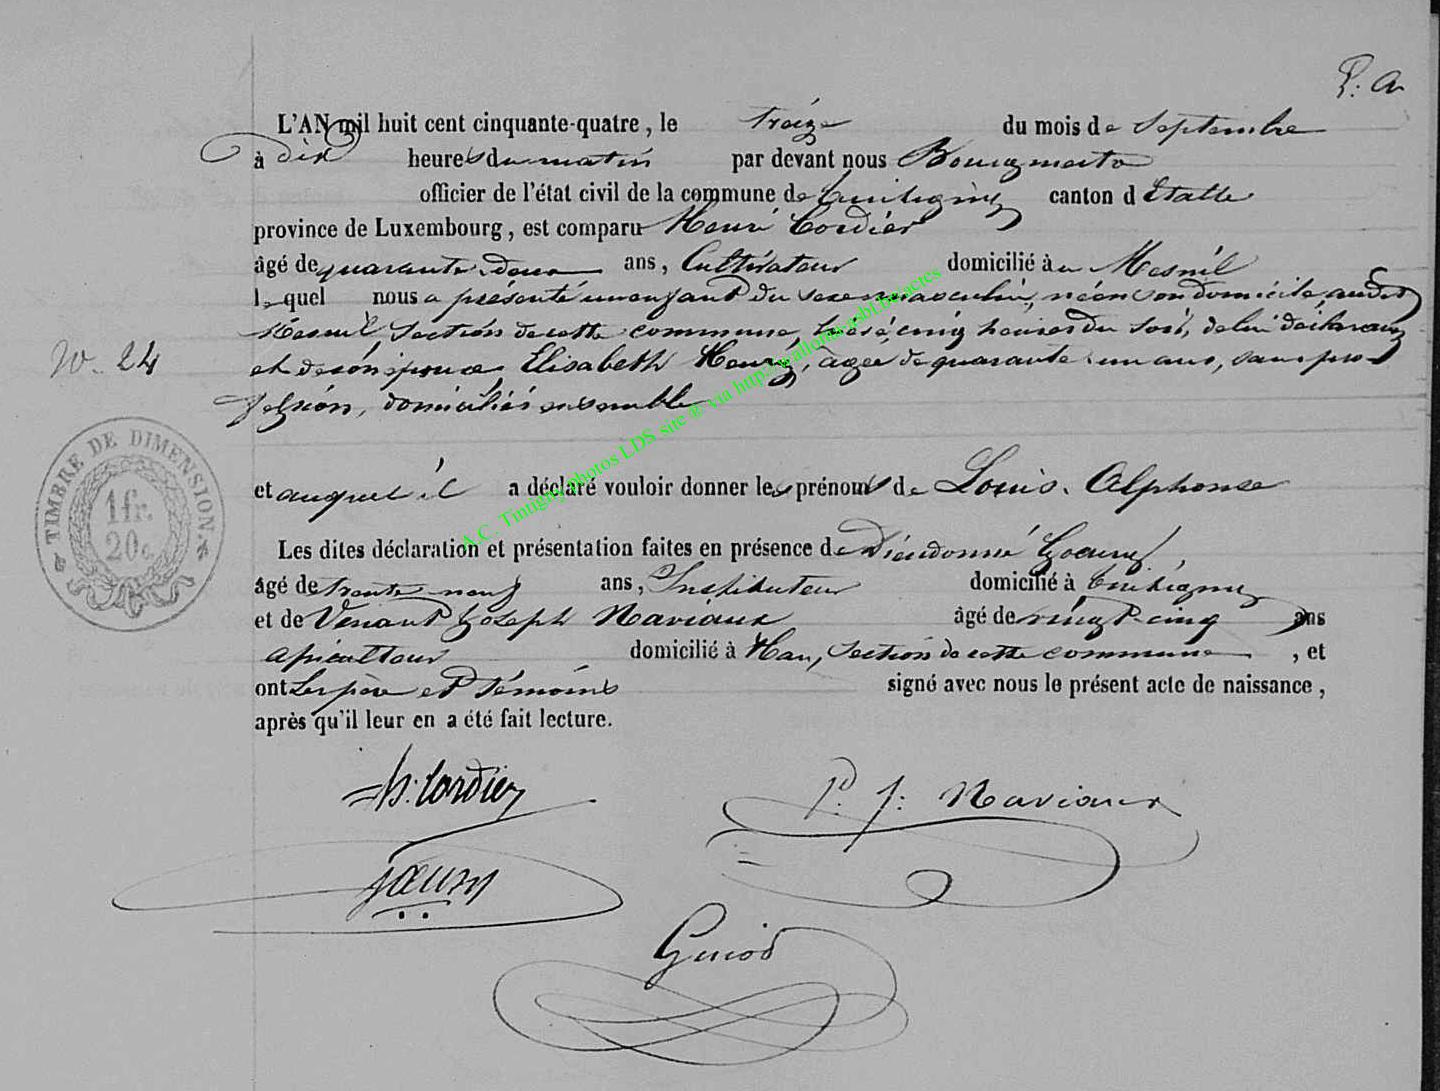 P. A
L'AN mil huit cent cinquante-quatre, le treize du mois de Septembre
à dix heures du matin par devant nous Bourgmestre
officier de l'état civil de la commune de Tintigny canton d'Etalle
province de Luxembourg, est comparu Henri Cordier
âgé de quarante deux ans, Cultivateur domicilié à Mesnil
lequel nous a présenté un enfant du sexe masculin, né en son domicile, audit
Mesnil, section de cette commune, cinq heures du soir, de lui déclarant
N. 24
et de son épouse Elisabeth Henry, agée de quarante un ans, sans pro-
fession, domiciliés ensemble
et auquel il a déclaré vouloir donner les prénoms de Louis Alphonse
Les dites déclaration et présentation faites en présence de Dieudonné Goeury,
âgé de trente neuf ans, Instituteur domicilié à Tintigny
et de Venant Joseph Naviaux âgé de vingt cinq ans
apiculteur domicilié à Han, section de cette commune, et
ont les père et témoins signé avec nous le présent acte de naissance,
après qu'il leur en a été fait lecture.
TIMBRE DE DIMENSION.
1 fr.
20 c.
h. Cordier
J. Naviaux
Goeury
Guiot
A.C. Tintigny photos LDS site ® via http://wallonia-asbl.be/actes